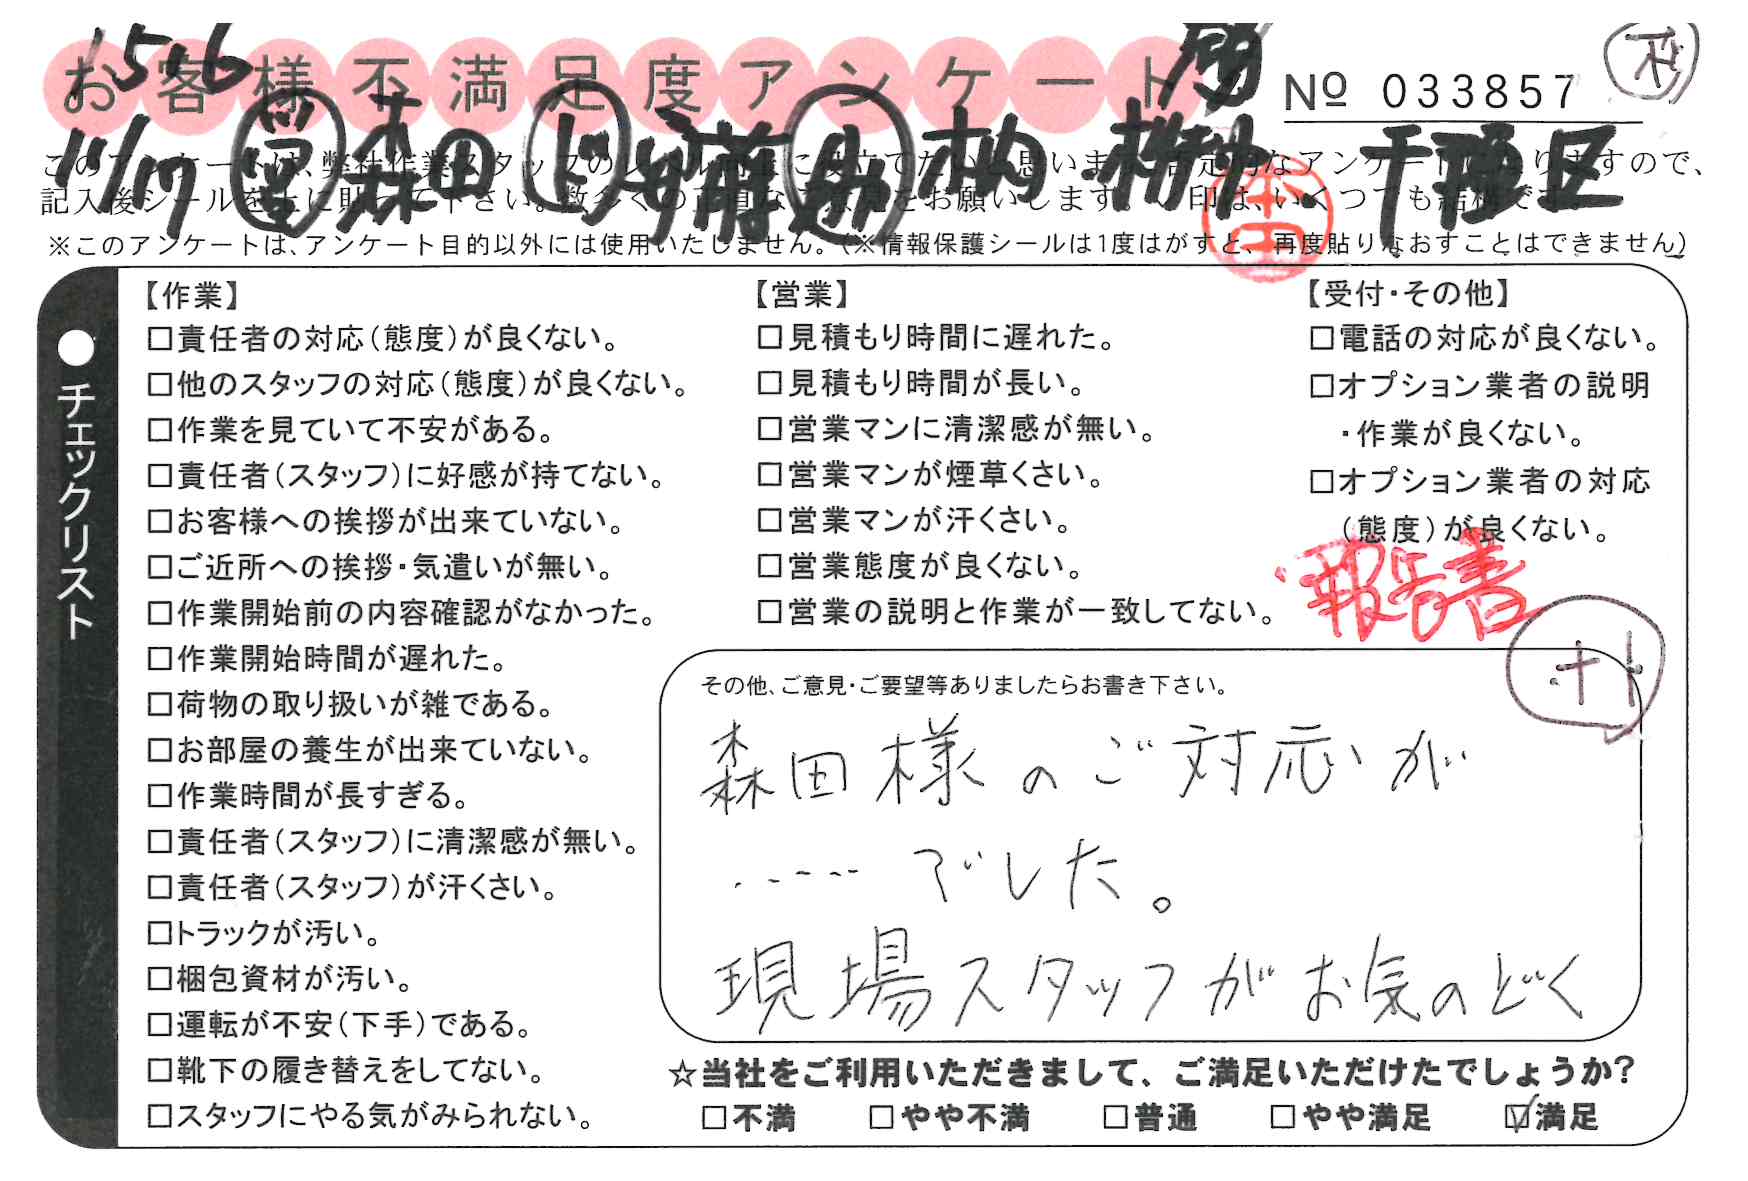 お客様不満足度アンケート
№ 033857
15.6
11/17 営 森田 ド 前 助 木内 千種区
このアンケートは、弊社作業スタッフのレベル向上に役立てたいと思います。否定的なアンケートになりますので、
記入後シールを上に貼って下さい。数多くの正直なご意見をお願いします。✓印は、いくつでも結構です。
※このアンケートは、アンケート目的以外には使用いたしません。（※情報保護シールは1度はがすと、再度貼りなおすことはできません）
●チェックリスト
【作業】
□責任者の対応（態度）が良くない。
□他のスタッフの対応（態度）が良くない。
□作業を見ていて不安がある。
□責任者（スタッフ）に好感が持てない。
□お客様への挨拶が出来ていない。
□ご近所への挨拶・気遣いが無い。
□作業開始前の内容確認がなかった。
□作業開始時間が遅れた。
□荷物の取り扱いが雑である。
□お部屋の養生が出来ていない。
□作業時間が長すぎる。
□責任者（スタッフ）に清潔感が無い。
□責任者（スタッフ）が汗くさい。
□トラックが汚い。
□梱包資材が汚い。
□運転が不安（下手）である。
□靴下の履き替えをしてない。
□スタッフにやる気がみられない。
【営業】
□見積もり時間に遅れた。
□見積もり時間が長い。
□営業マンに清潔感が無い。
□営業マンが煙草くさい。
□営業マンが汗くさい。
□営業態度が良くない。
□営業の説明と作業が一致してない。
【受付・その他】
□電話の対応が良くない。
□オプション業者の説明
・作業が良くない。
□オプション業者の対応
（態度）が良くない。
報告書
その他、ご意見・ご要望等ありましたらお書き下さい。
森田様のご対応いが
・・---でした。
現場スタッフがお気のどく
☆当社をご利用いただきまして、ご満足いただけたでしょうか?
□不満 □やや不満 □普通 □やや満足 ☑満足